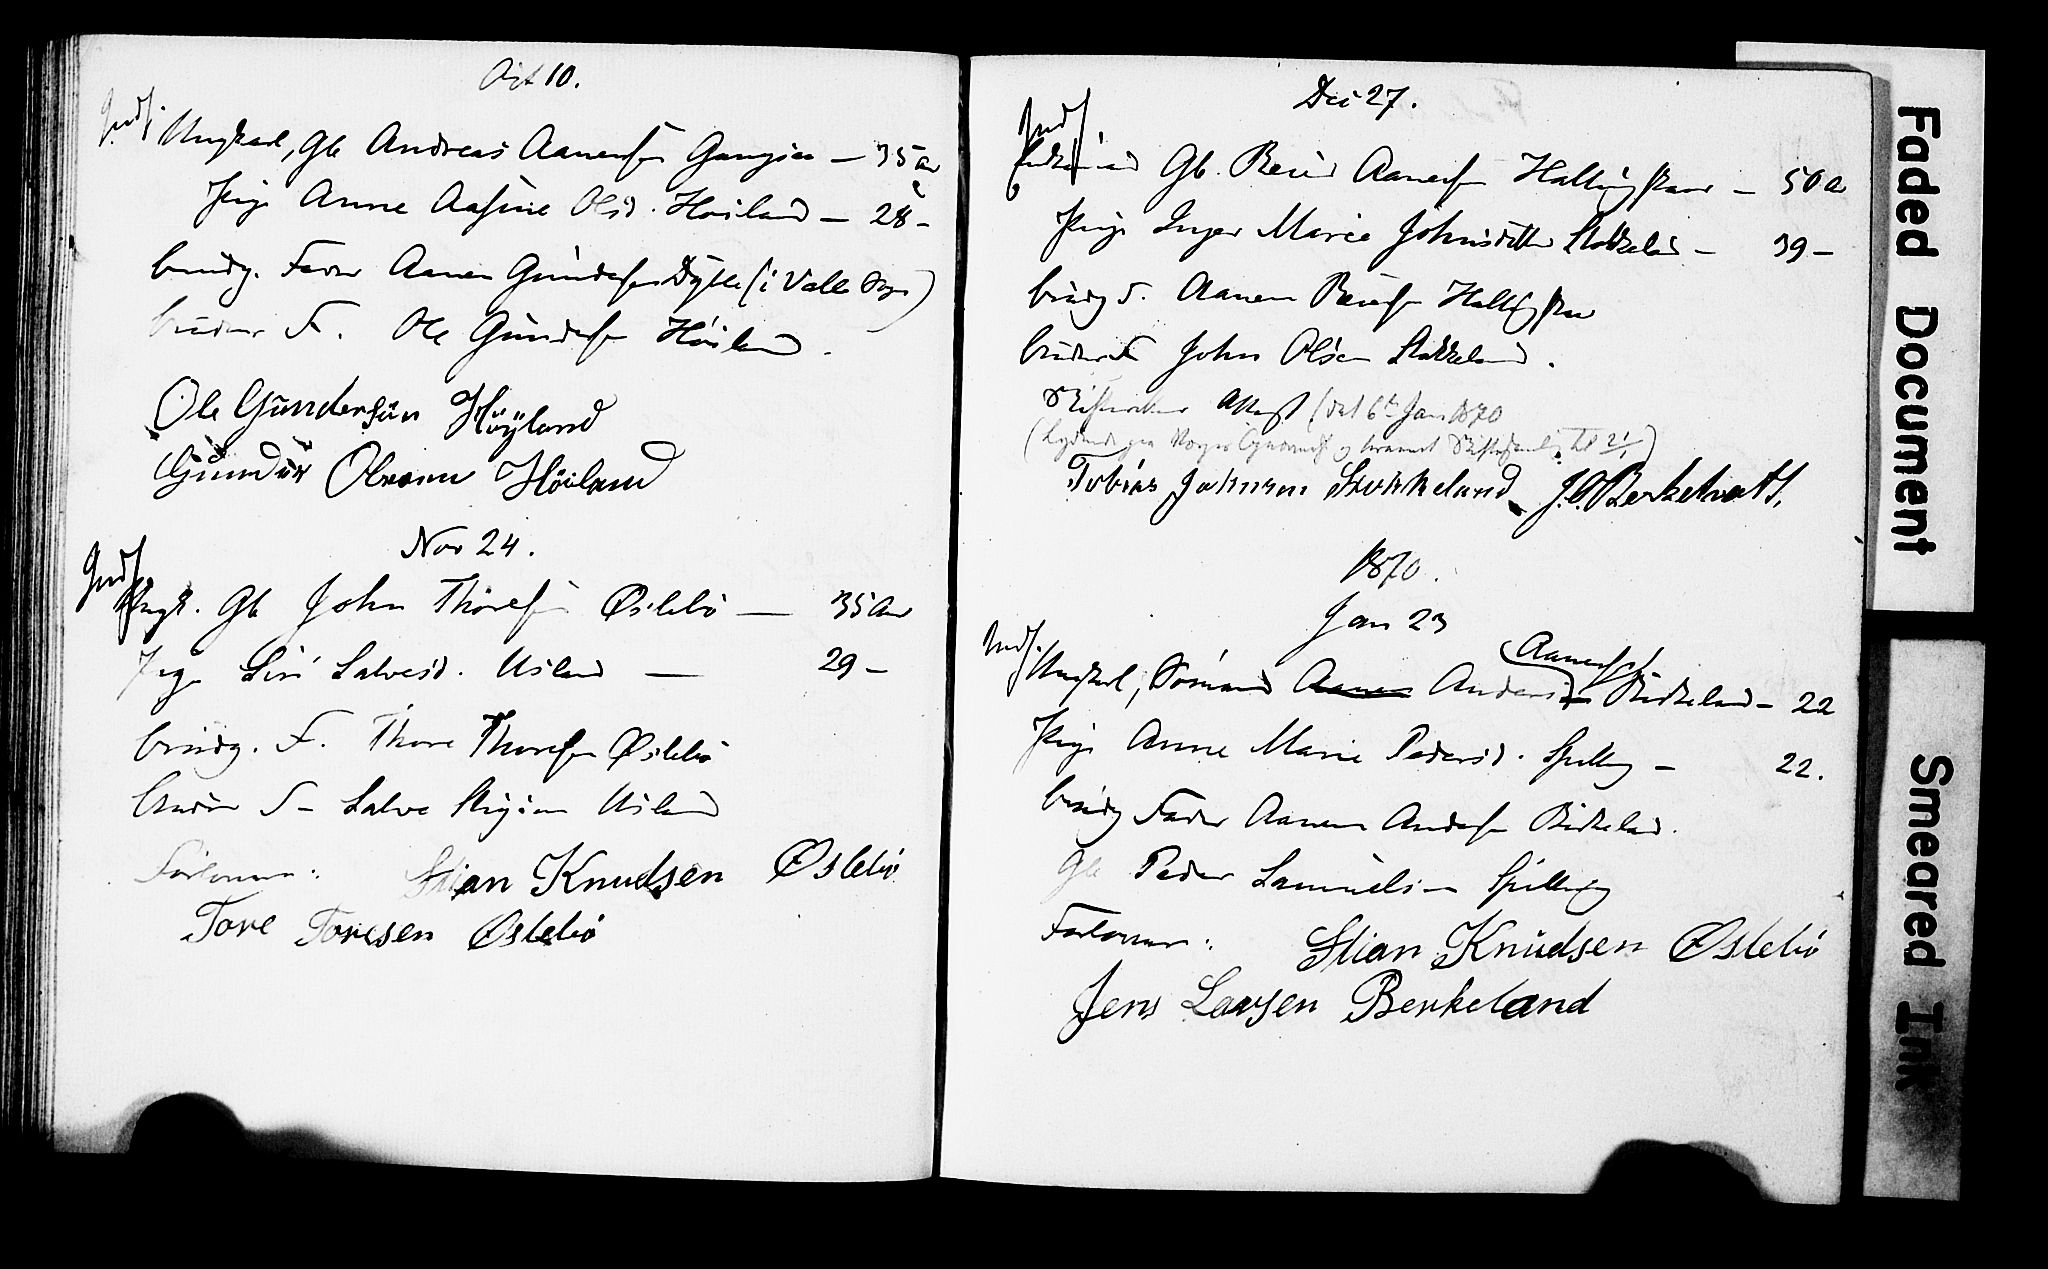 Oct 10.
Indf
Ungkarl, Gb Andreas Aanensen — 35 aar
Pige Anne Aasine Olsd. Høiland — 28 –
brudg. Fader Aanen Gundersen (i Valle Sogn)
brudens F. Ole Gundersen Høiland.
Ole Gundersün Höÿland
Gunder Olsen Höiland
Nov 24.
Indf
Ungk. Gb John Thoresen Øslebø — 35 Aar
Pige Siri Salvesd. Usland — 29 –
brudg. F. Thore Thoresen Øslebø
Brudens F – Salve Usland
Forlovere:
Stian Knudsen Øslebö
Tore Toresen Øslebö
Dec 27.
Indf
Gb. Aanensen — 50 a
Pige Inger Marie Johnsdatter Stokkeland — 39 –
brudg F. Aanen
brudens F John Olsen Stokkeland.
Attest (dat 6te Jan 1870
Tobias Johnsen Stokkeland J.O. Berkelvatt.
1870.
Jan 23
Indf.
Aanensen
Ungkarl, Sømand Aanen Anders Birkeland – 22
Pige Anne Marie Pedersd. Spilling – 22.
brudg Fader Aanen Andersen Birkeland.
Gb Peder Samuelsen Spilling
Forlovere:
Stian Knüdsen Øslebö
Jens Larsen Berkeland
Faded Document
Smeared Ink